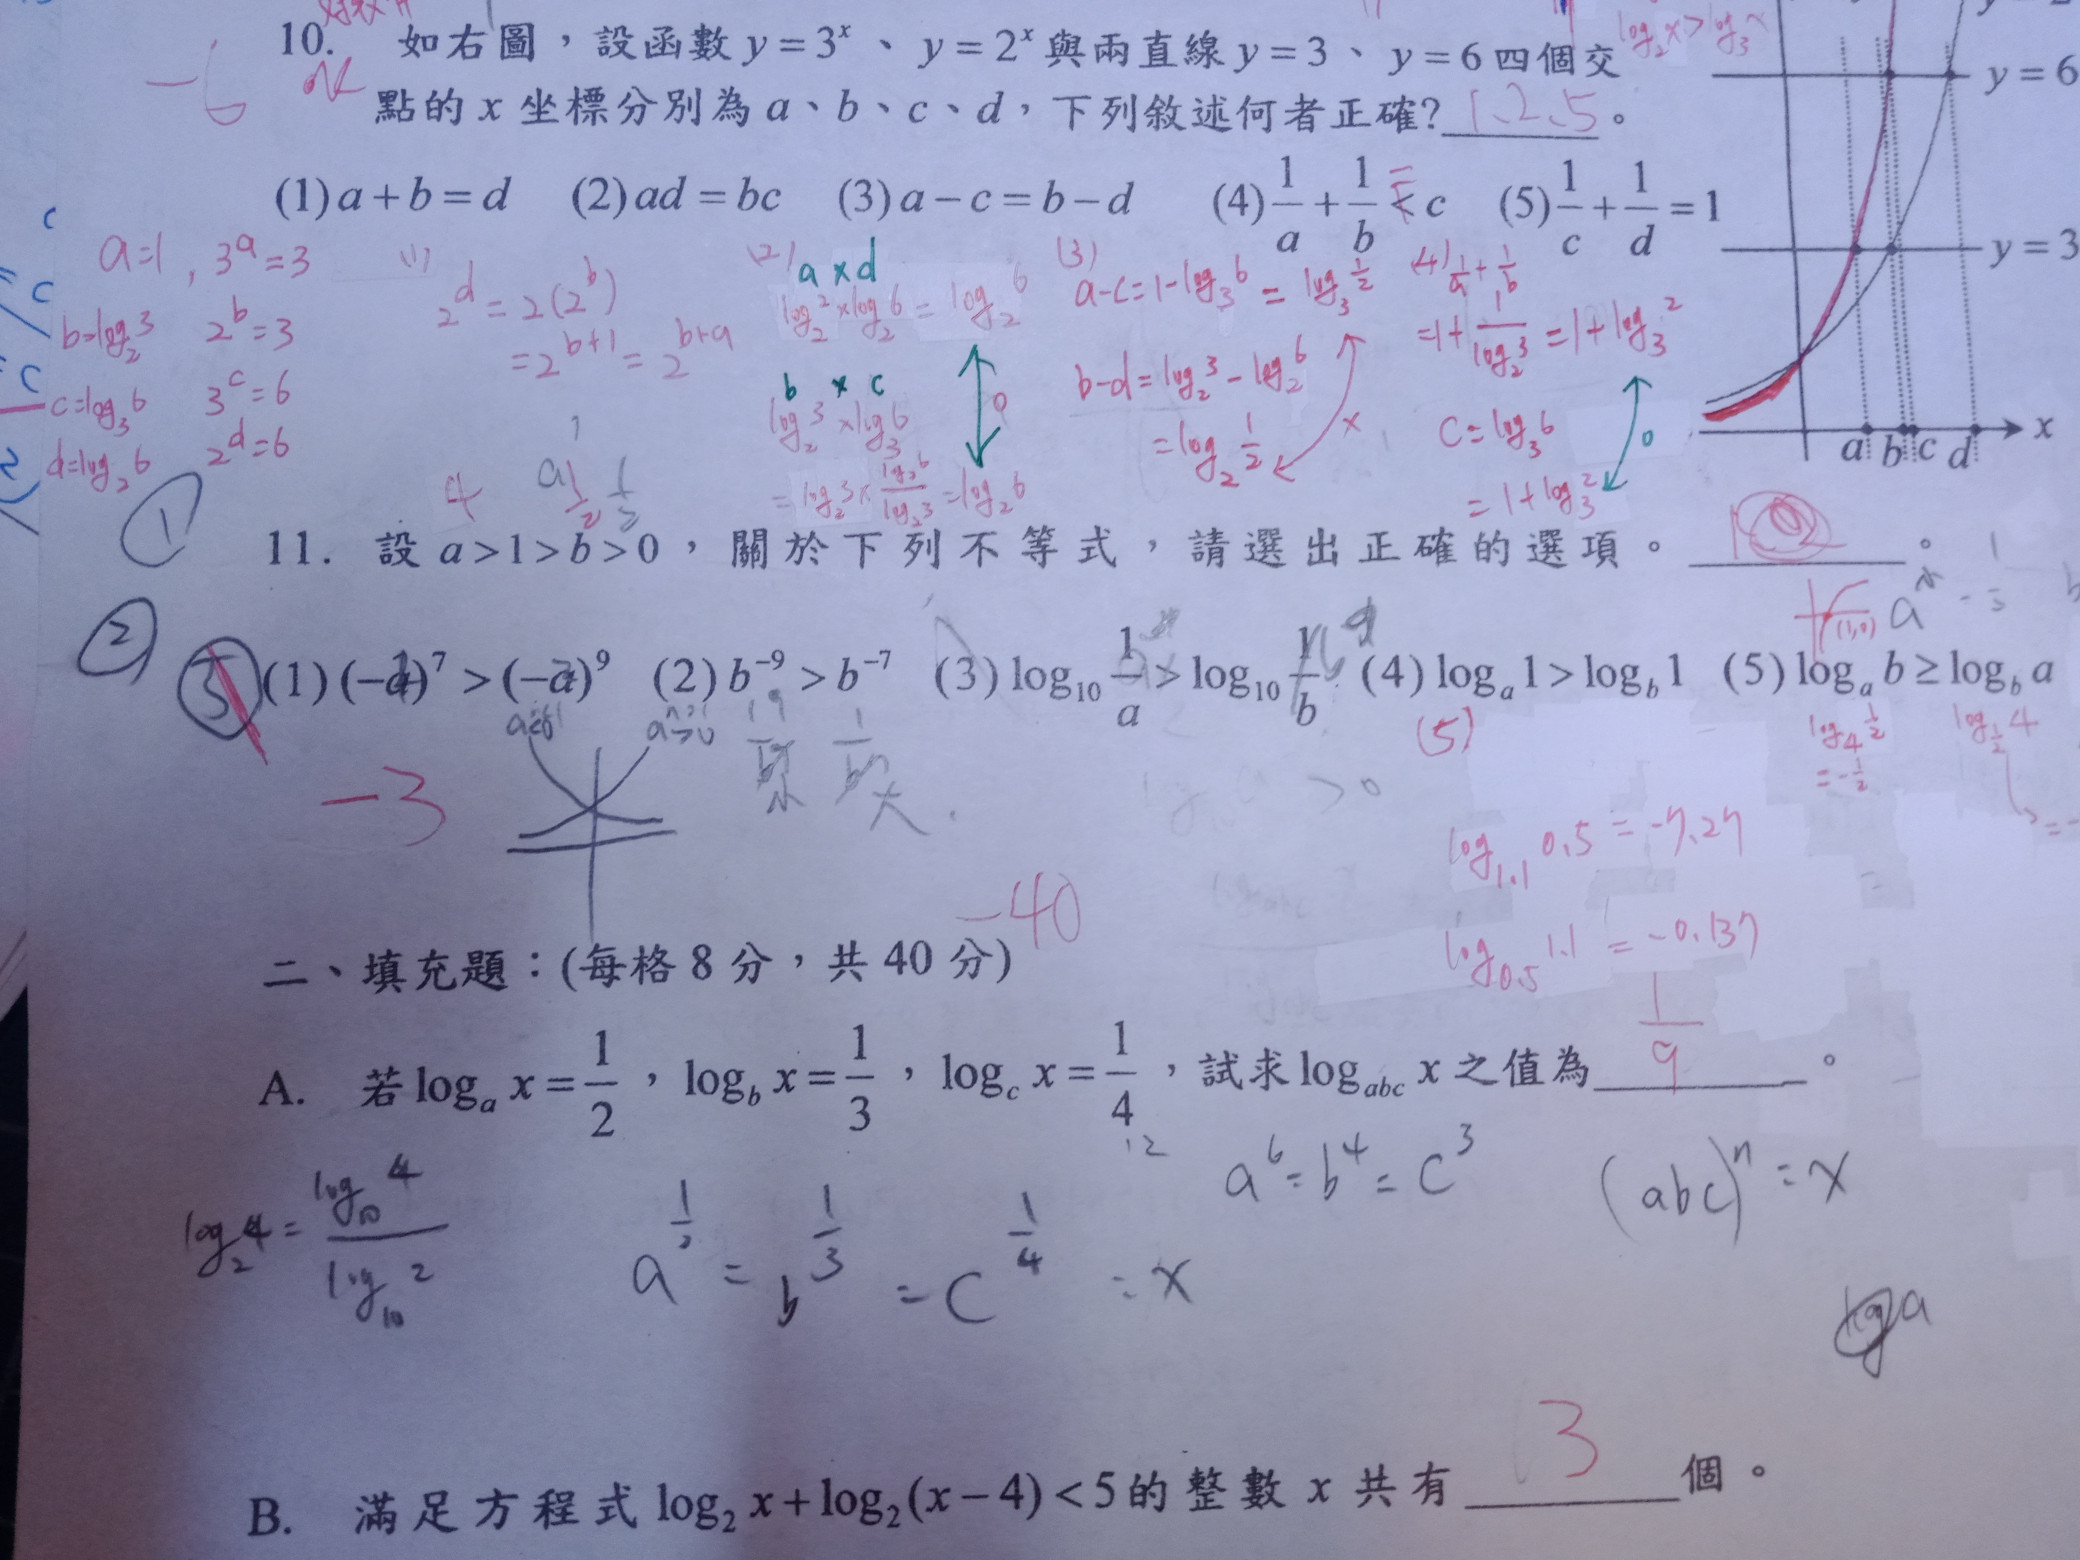 10. 如右圖，設函數 y = 3ˣ 、 y = 2ˣ 與兩直線 y = 3 、 y = 6 四個交
log₂x > log₃x
-6
點的 x 坐標分別為 a、b、c、d，下列敘述何者正確? 1.2.5 。
y = 6
(1) a + b = d (2) ad = bc (3) a − c = b − d (4) 1/a + 1/b < c (5) 1/c + 1/d = 1
y = 3
a b c d x
a=1 , 3^a = 3
b=log₂3 2^b = 3
c=log₃6 3^c = 6
d=log₂6 2^d = 6
(1)
2^d = 2(2^b)
= 2^(b+1) = 2^(b+a)
(2) a × d
log₂2 × log₂6 = log₂6
b × c
log₂3 × log₃6
= log₂3 × log₂6/log₂3 = log₂6
(3)
a-c = 1-log₃6 = log₃ 1/2
b-d = log₂3 - log₂6
= log₂ 1/2
(4) 1/a + 1/b
= 1 + 1/log₂3 = 1 + log₃2
c = log₃6
= 1 + log₃2
①
11. 設 a > 1 > b > 0 ， 關於下列不等式，請選出正確的選項。 。
②
(1) (−a)⁷ > (−a)⁹ (2) b⁻⁹ > b⁻⁷ (3) log₁₀ 1/a > log₁₀ 1/b (4) logₐ 1 > log_b 1 (5) logₐ b ≥ log_b a
(1,0)
(5)
log₄ 1/2
= -1/2
log_1/2 4
-3
log₁.₁ 0.5 = -7.27
log₀.₅ 1.1 = -0.137
-40
二、填充題：(每格 8 分，共 40 分)
A. 若 logₐ x = 1/2 ， log_b x = 1/3 ， log_c x = 1/4 ，試求 log_abc x 之值為 1/9 。
12
a⁶ = b⁴ = c³
(abc)ⁿ = x
log₂4 = log₁₀4 / log₁₀2
a^1/2 = b^1/3 = c^1/4 = x
B. 滿足方程式 log₂ x + log₂(x − 4) < 5 的整數 x 共有 3 個。